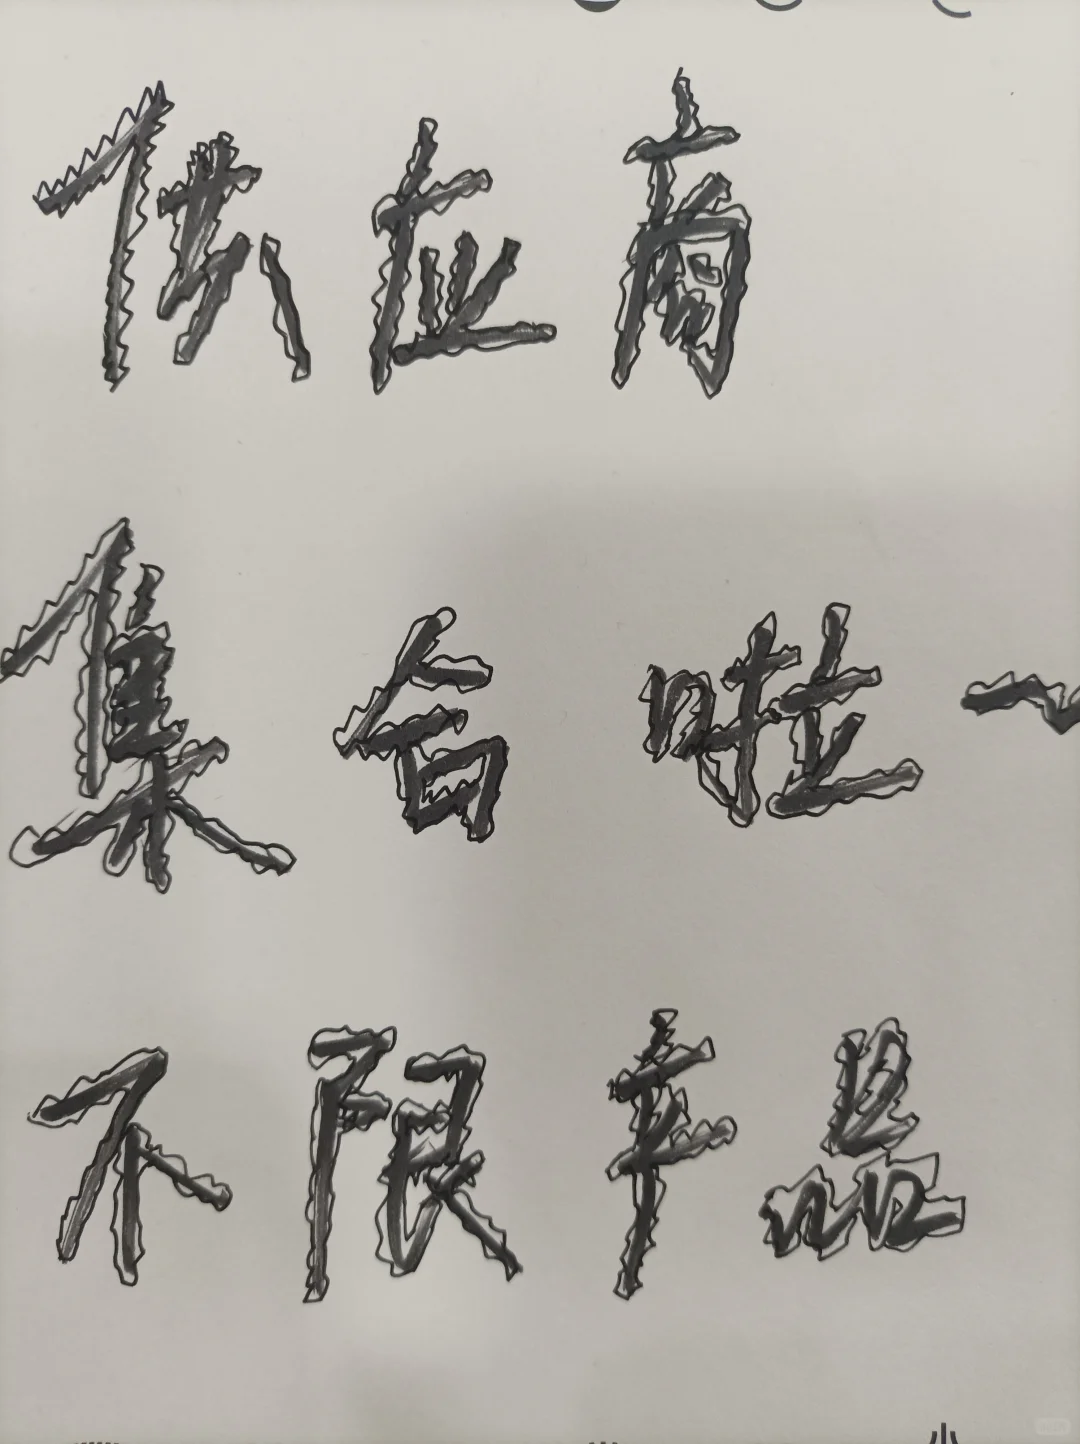 供应商
集合啦～
不限产品